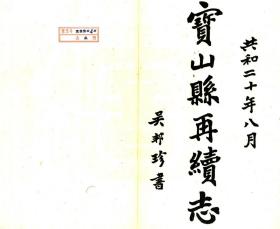 共和二十年八月
寶山縣再續志
吴邦珍書